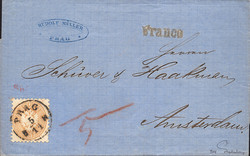 RUDOLF MÜLLER
PRAG
Franco
Herren
Schüver & Haakman,
Amsterdam
PRAG
5